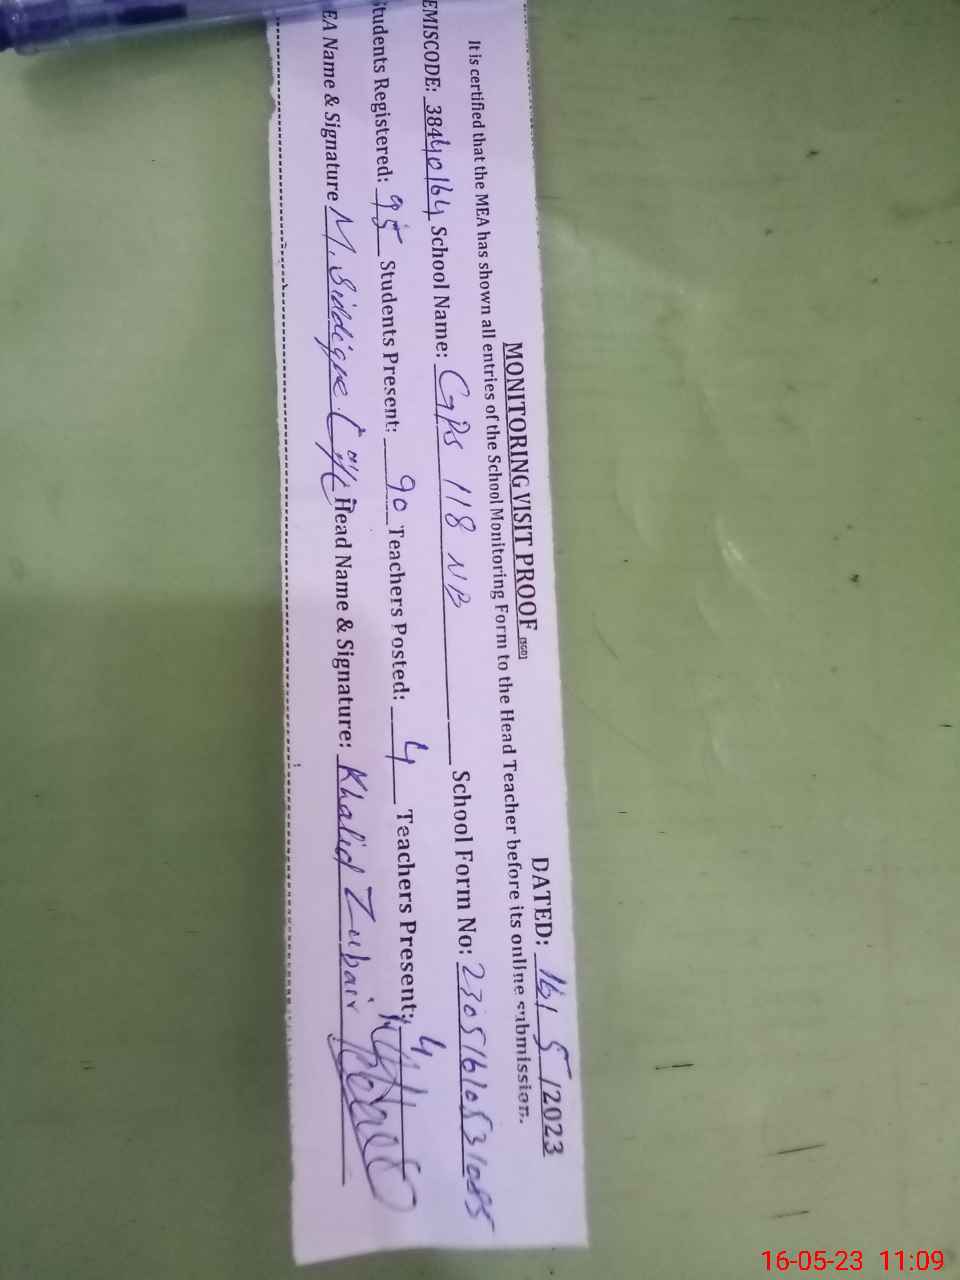 MONITORING VISIT PROOF (SGD) DATED: 16/ 5 /2023
It is certified that the MEA has shown all entries of the School Monitoring Form to the Head Teacher before its online submission.
EMISCODE: 38440164 School Name: GPS 118 NB School Form No: 23051610531085
Students Registered: 95 Students Present: 90 Teachers Posted: 4 Teachers Present: 4
EA Name & Signature M. Siddique Head Name & Signature: Khalid Zubair
16-05-23 11:09